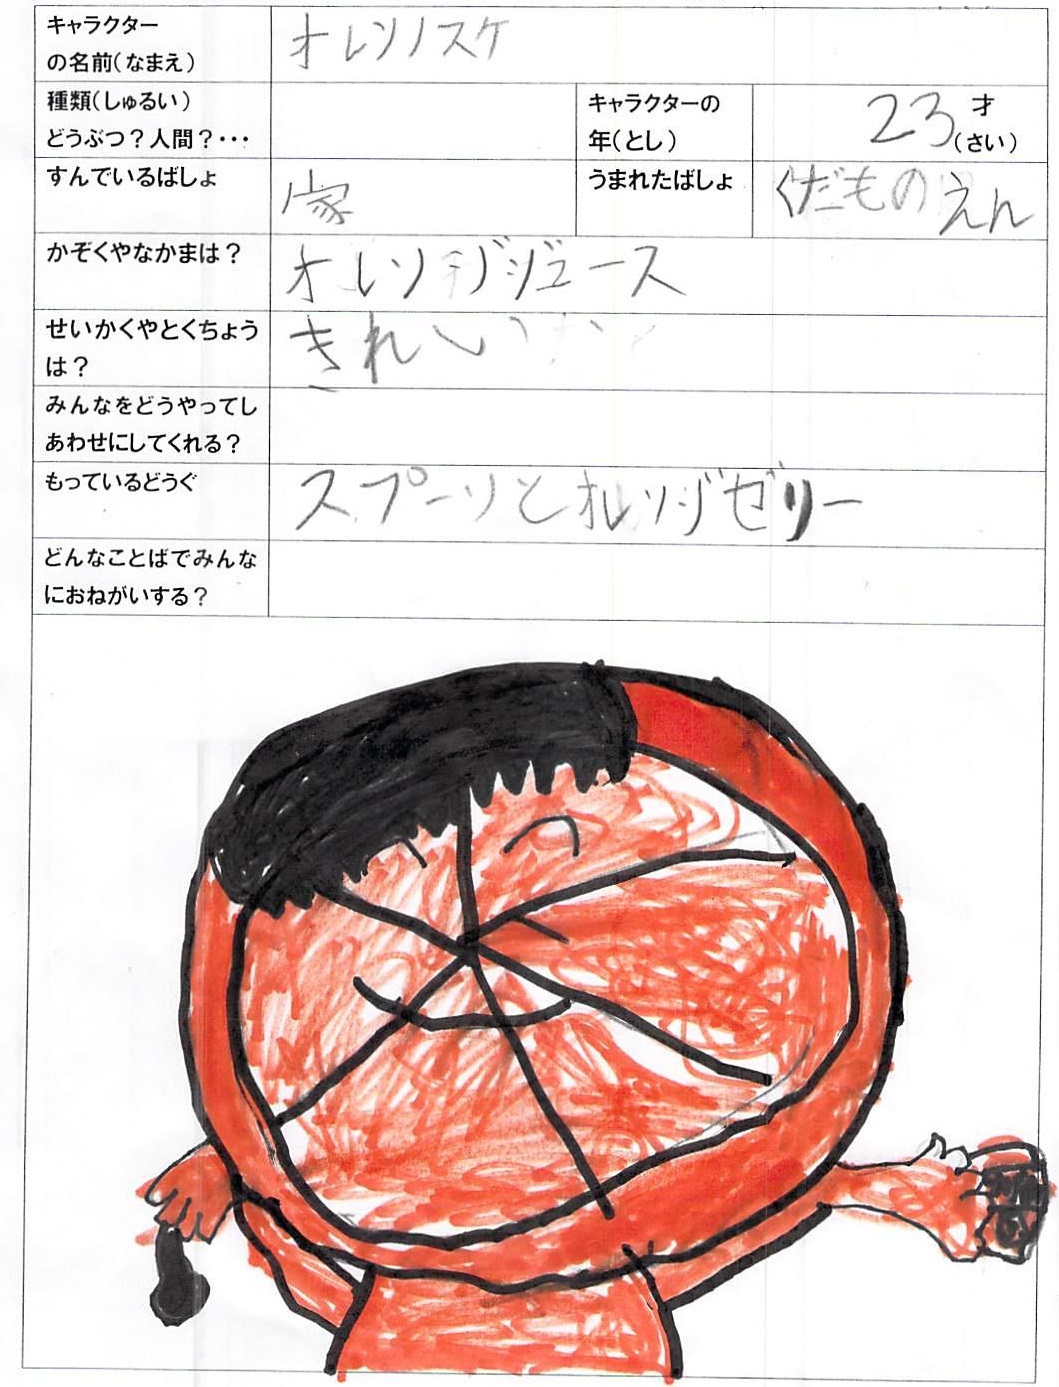 キャラクター
の名前(なまえ)
オレンノスケ
種類(しゅるい)
どうぶつ？人間？・・・
キャラクターの
年(とし)
23才
(さい)
すんでいるばしょ
家
うまれたばしょ
くだものえん
かぞくやなかまは？
オレンジジュース
せいかくやとくちょう
は？
きれい
みんなをどうやってし
あわせにしてくれる？
もっているどうぐ
スプーンとオレンジゼリー
どんなことばでみんな
におねがいする？